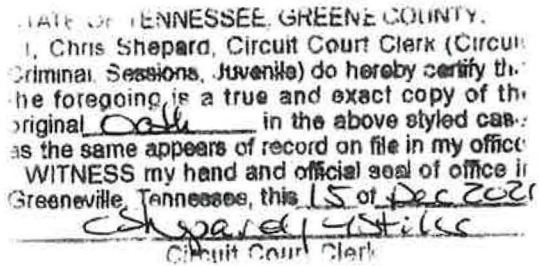 STATE OF TENNESSEE, GREENE COUNTY.
I, Chris Shepard, Circuit Court Clerk (Circui
Criminal, Sessions, Juvenile) do hereby certify th
he foregoing is a true and exact copy of th
original Oath in the above styled cas
as the same appears of record on file in my office
WITNESS my hand and official seal of office i
Greeneville, Tennessee, this 15 of Dec
CShepard
Circuit Court Clerk